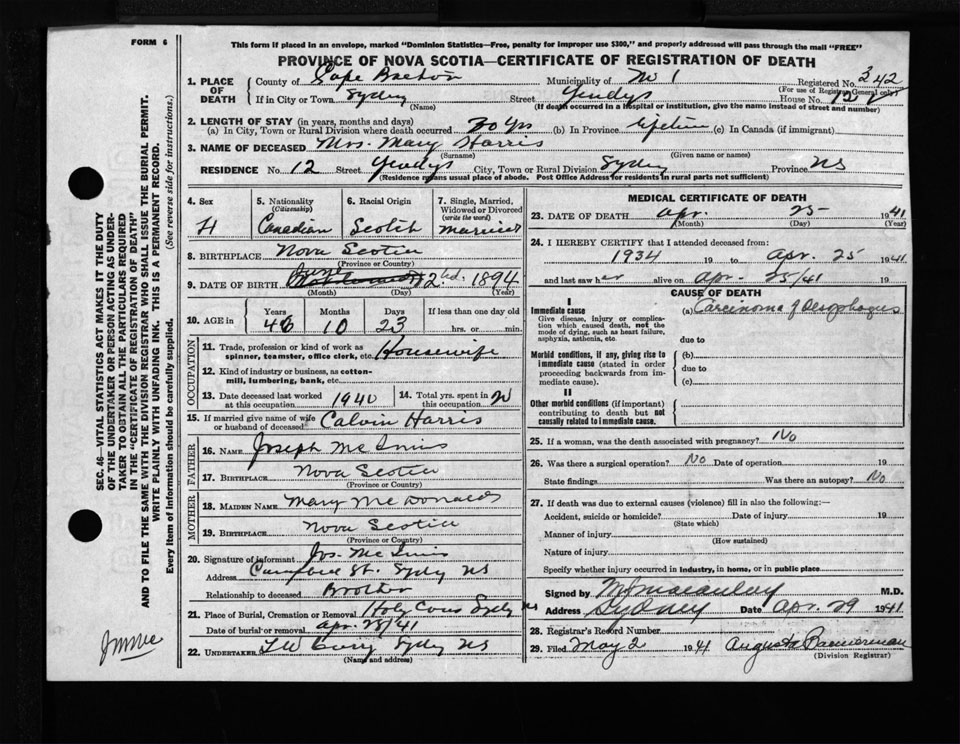 FORM 6
This form if placed in an envelope, marked "Dominion Statistics—Free, penalty for improper use $300," and properly addressed will pass through the mail "FREE"
PROVINCE OF NOVA SCOTIA—CERTIFICATE OF REGISTRATION OF DEATH
SEC. 46—VITAL STATISTICS ACT MAKES IT THE DUTY
OF THE UNDERTAKER OR PERSON ACTING AS UNDER-
TAKER TO OBTAIN ALL THE PARTICULARS REQUIRED
IN THE "CERTIFICATE OF REGISTRATION OF DEATH"
AND TO FILE THE SAME WITH THE DIVISION REGISTRAR WHO SHALL ISSUE THE BURIAL PERMIT.
WRITE PLAINLY WITH UNFADING INK. THIS IS A PERMANENT RECORD.
Every item of Information should be carefully supplied. (See reverse side for instructions.)
1. PLACE OF DEATH
County of Cape Breton Municipality of No 1 Registered No. 342
(For use of Registrar General only)
If in City or Town Sydney Street House No. 12
(Name) (If death occurred in a hospital or institution, give the name instead of street and number)
2. LENGTH OF STAY (in years, months and days)
(a) In City, Town or Rural Division where death occurred 30 yrs (b) In Province Lifetime (c) In Canada (if immigrant)
3. NAME OF DECEASED Mrs. Mary Harris
(Surname) (Given name or names)
RESIDENCE No. 12 Street City, Town or Rural Division Sydney Province NS
(Residence means usual place of abode. Post Office Address for residents in rural parts not sufficient)
4. Sex
5. Nationality (Citizenship) Canadian
6. Racial Origin Scotch
7. Single, Married, Widowed or Divorced (write the word) married
8. BIRTHPLACE Nova Scotia
(Province or Country)
9. DATE OF BIRTH June 2nd. 1894
(Month) (Day) (Year)
10. AGE in Years 46 Months 10 Days 23 If less than one day old
hrs. or min.
OCCUPATION
11. Trade, profession or kind of work as spinner, teamster, office clerk, etc. Housewife
12. Kind of industry or business, as cotton-mill, lumbering, bank, etc.
13. Date deceased last worked at this occupation 1940 14. Total yrs. spent in this occupation
15. If married give name of wife or husband of deceased Calvin Harris
FATHER
16. NAME Joseph McInnis
17. BIRTHPLACE Nova Scotia
(Province or Country)
MOTHER
18. MAIDEN NAME Mary McDonald
19. BIRTHPLACE Nova Scotia
(Province or Country)
20. Signature of informant Jos. McInnis
Address St. Sydney NS
Relationship to deceased Brother
21. Place of Burial, Cremation or Removal Holy Cross Sydney NS
Date of burial or removal Apr. 28/41
22. UNDERTAKER T W Curry Sydney NS
(Name and address)
MEDICAL CERTIFICATE OF DEATH
23. DATE OF DEATH Apr. 25 1941
(Month) (Day) (Year)
24. I HEREBY CERTIFY that I attended deceased from:
1934 19 to Apr. 25 1941
and last saw her alive on Apr. 25/41
CAUSE OF DEATH
I
Immediate cause (a) Carcinoma of Oesophagus
Give disease, injury or complication which caused death, not the mode of dying, such as heart failure, asphyxia, asthenia, etc.
due to
Morbid conditions, if any, giving rise to immediate cause (stated in order proceeding backwards from immediate cause).
(b)
due to
(c)
II
Other morbid conditions (if important) contributing to death but not causally related to immediate cause.
25. If a woman, was the death associated with pregnancy? No
26. Was there a surgical operation? No Date of operation 19
State findings Was there an autopsy? No
27. If death was due to external causes (violence) fill in also the following:—
Accident, suicide or homicide? Date of injury 19
(State which)
Manner of injury
(How sustained)
Nature of injury
Specify whether injury occurred in industry, in home, or in public place
Signed by M.D.
Address Sydney Date Apr. 29 1941
28. Registrar's Record Number
29. Filed May 2 1941 Augusta Bannerman
(Division Registrar)